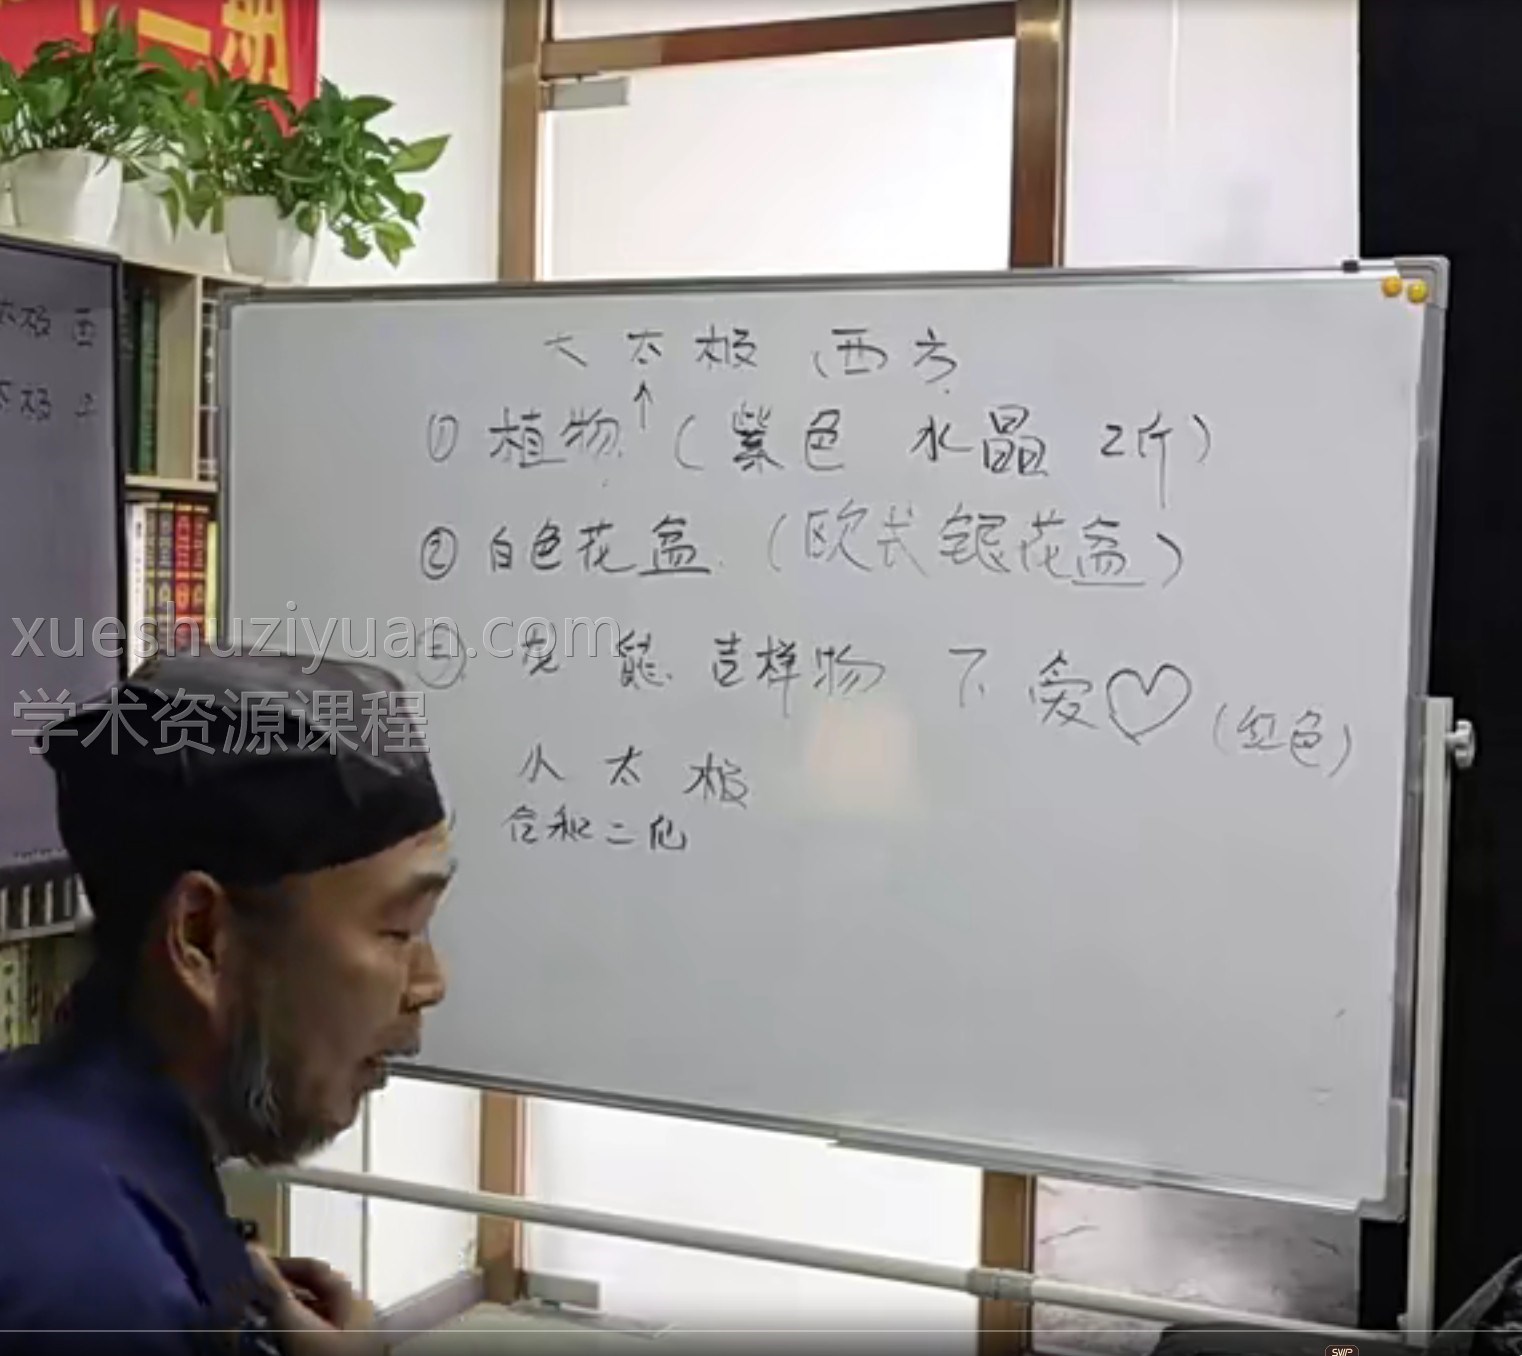 十一期
大太极 西方
↑
① 植物 (紫色 水晶 2斤)
② 白色花盆 (欧式银花盆)
吉祥物 下 爱♡ (红色)
小太极
合和二仙
太极 西
太极
xueshuziyuan.com
学术资源课程
SVIP